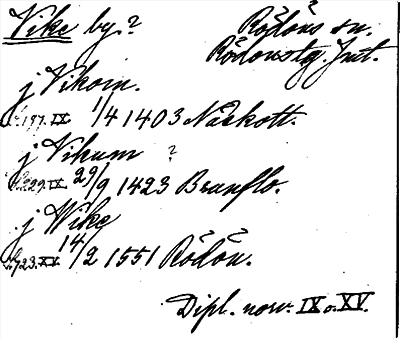 Vike by.?
Rödöns sn.
Rödonstg. Jmt.
j Vikom.
197. IX. 1/4 1403 Näskott.
j Vikum ?
229. IX. 29/9 1423 Brunflo.
j Wike
123. XV. 14/2 1551 Rödön.
Dipl. norv. IX o. XV.